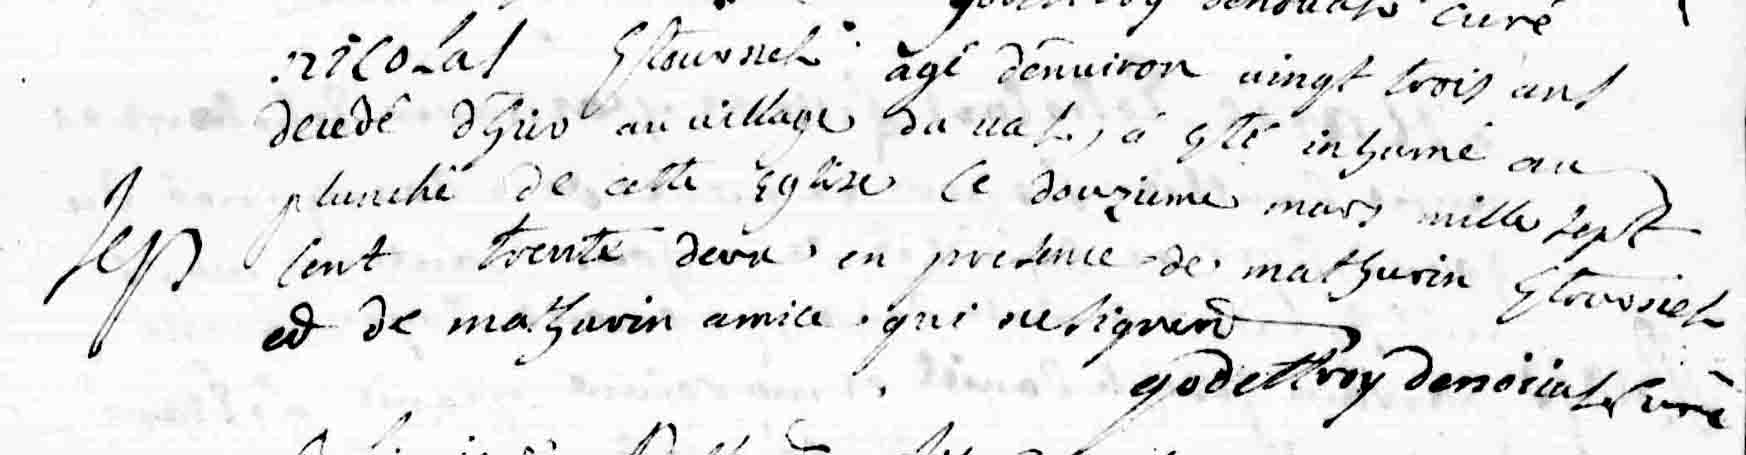 curé
nicolas Estournel âgé d'environ vingt trois ans
decedé d'hier au village du val, a esté inhumé au
planché de cette Eglise le douzieme mars mille sept
Sep cent trente deux en presence de mathurin Estournel
et de mathurin amice qui ne signent
godeffroy denoual Curé